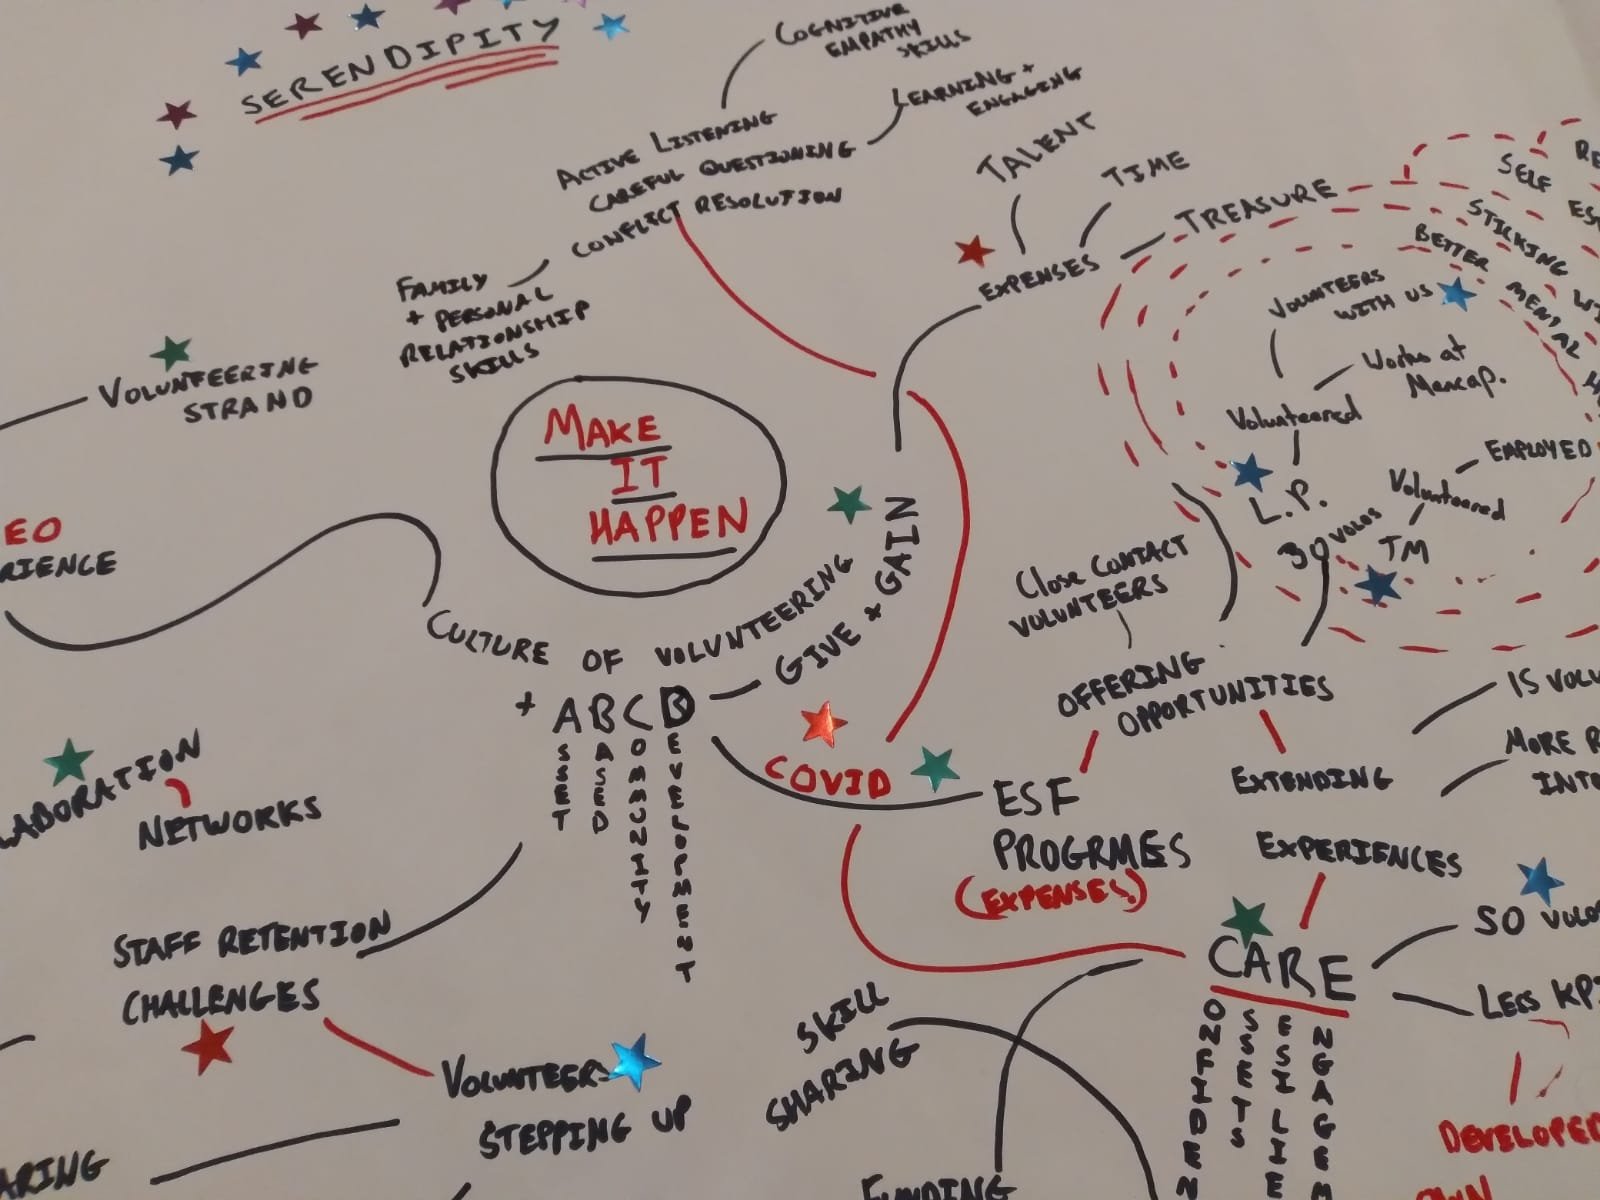 SERENDIPITY
COGNITIVE
EMPATHY
SKILLS
LEARNING +
ENGAGING
ACTIVE LISTENING
CAREFUL QUESTIONING
CONFLICT RESOLUTION
FAMILY
+ PERSONAL
RELATIONSHIP
SKILLS
TALENT
TIME
EXPENSES
TREASURE
SELF
STICKING
BETTER
MENTAL
VOLUNTEERS
WITH US
Works at
Mencap.
Volunteered
L.P.
EMPLOYED
Volunteered
TM
30 VOLOS
VOLUNTEERING
STRAND
MAKE
IT
HAPPEN
EO
RIENCE
CULTURE OF VOLUNTEERING
GIVE + GAIN
+ ABCD
ASSET
BASED
COMMUNITY
DEVELOPMENT
Close CONTACT
VOLUNTEERS
OFFERING
OPPORTUNITIES
COVID
ESF
PROGRMES
(EXPENSES!)
EXTENDING
EXPERIENCES
IS VOLU
MORE R
INTO
LABORATION
NETWORKS
STAFF RETENTION
CHALLENGES
VOLUNTEERS
STEPPING UP
ARING
SKILL
SHARING
FUNDING
CARE
CONFIDEN
ASSETS
RESILIE
ENGAGEM
SO VOLO
LESS KPI
DEVELOPED
OWN